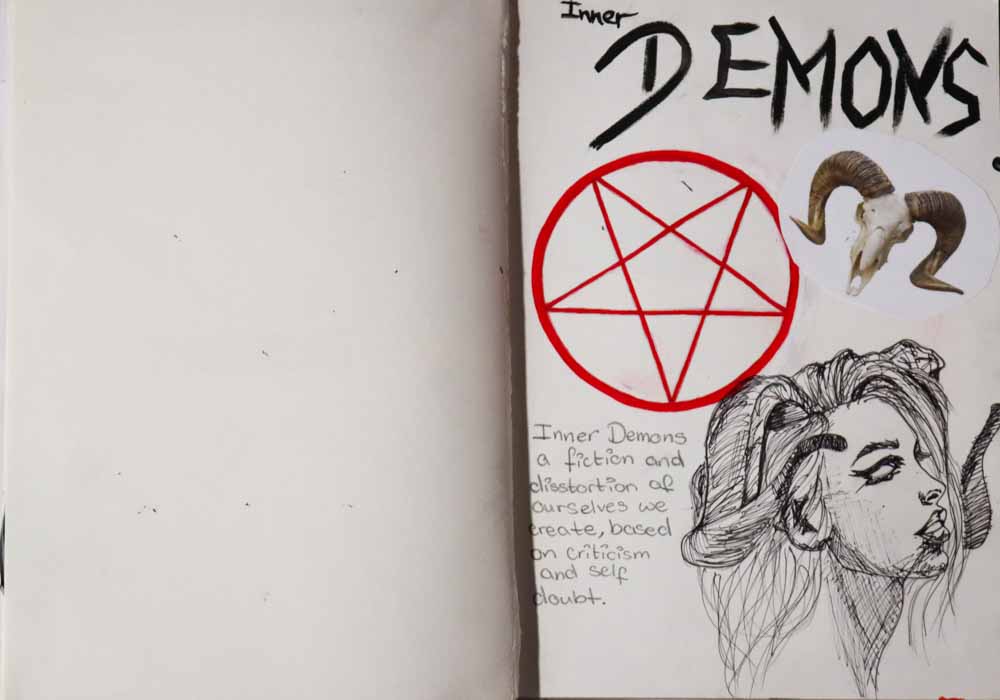 Inner
DEMONS
Inner Demons
a fiction and
disstortion of
ourselves we
create, based
on criticism
and self
doubt.